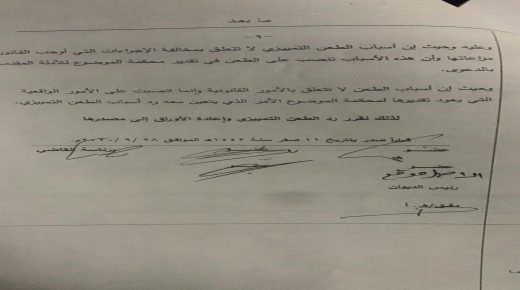 ما بعد
- ٩ -
وعليه وحيث إن أسباب الطعن التمييزي لا تتعلق بمخالفة الإجراءات التي أوجب القانون
مراعاتها وأن هذه الأسباب تنصب على الطعن في تقدير محكمة الموضوع للأدلة المقدمة
بالدعوى.
وحيث إن أسباب الطعن لا تتعلق بالأمور القانونية وإنما انصبت على الأمور الواقعية
التي يعود تقديرها لمحكمة الموضوع الأمر الذي يتعين معه رد أسباب الطعن التمييزي.
لذلك نقرر رد الطعن التمييزي وإعادة الأوراق إلى مصدرها
قراراً صدر بتاريخ ١١ صفر سنة ١٤٤٢هـ الموافق ٢٠٢٠/٩/٢٨م
عضو عضو برئاسة القاضي
عضو عضو
رئيس الديوان
دقق/